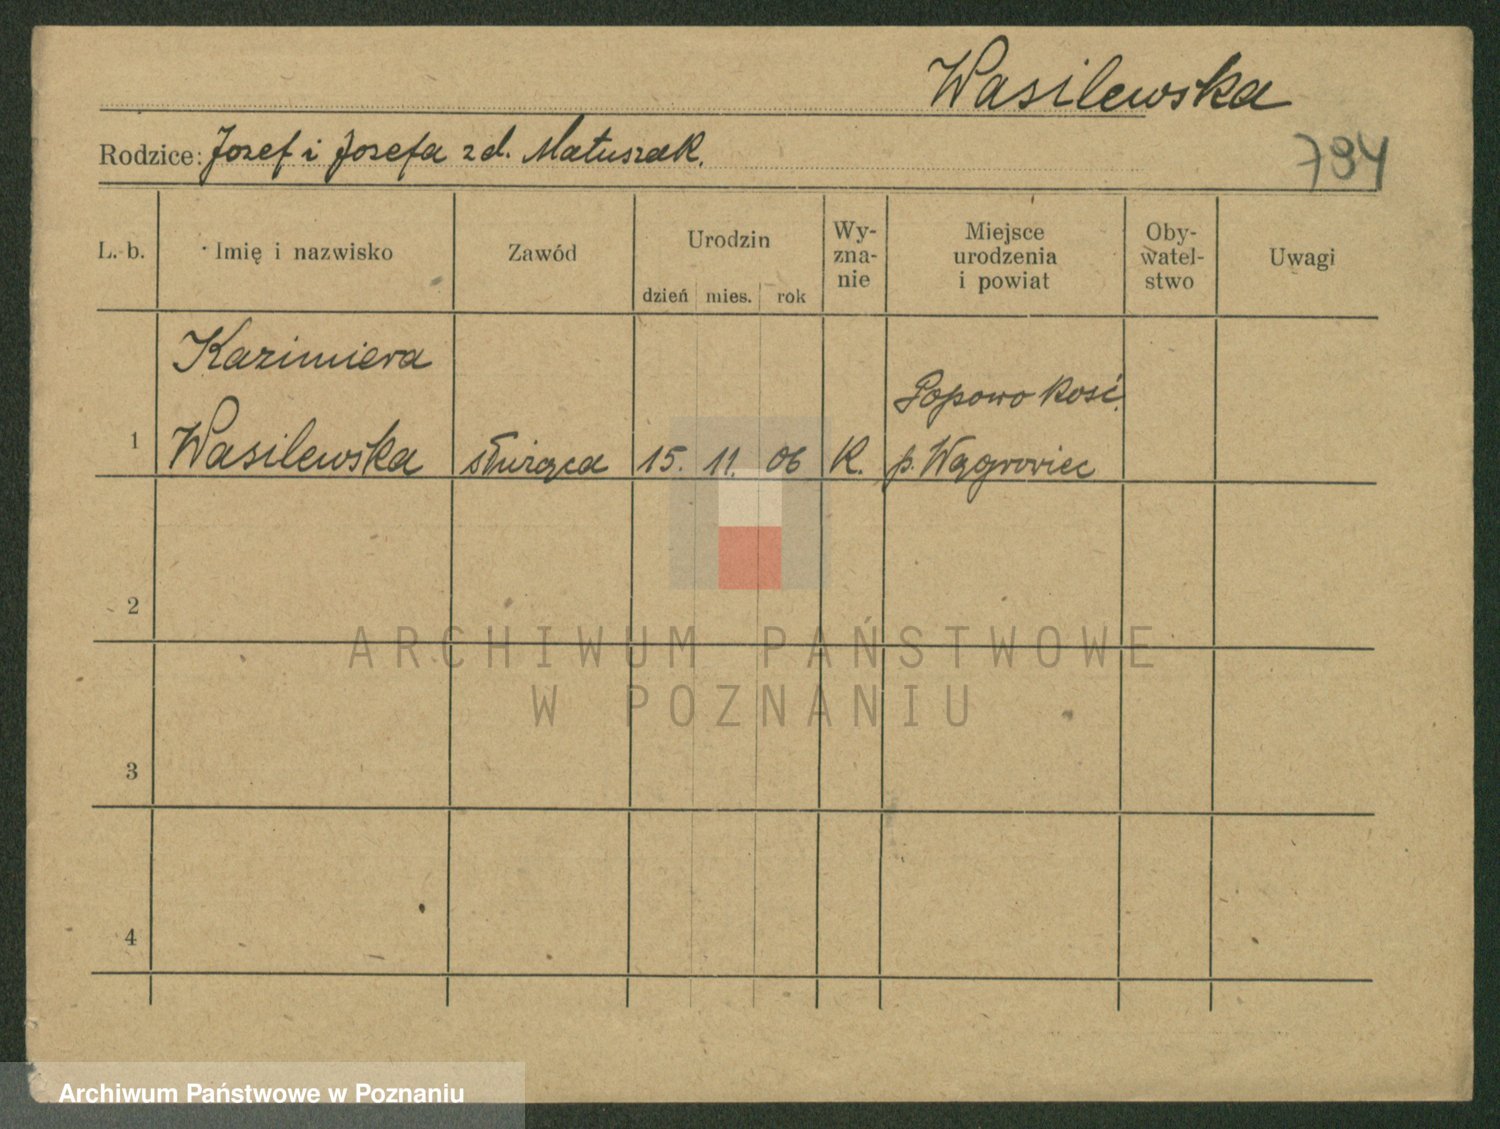 Wasilewska
Rodzice: Jozef i Jozefa zd. Matuszak.
794
L. b.
Imię i nazwisko
Zawód
Urodzin
dzień mies. rok
Wy-
zna-
nie
Miejsce
urodzenia
i powiat
Oby-
watel-
stwo
Uwagi
Kazimiera
Popowo Kość.
1 Wasilewska służąca 15. 11. 06 K. p. Wągrowiec
2
ARCHIWUM PAŃSTWOWE
W POZNANIU
3
4
Archiwum Państwowe w Poznaniu